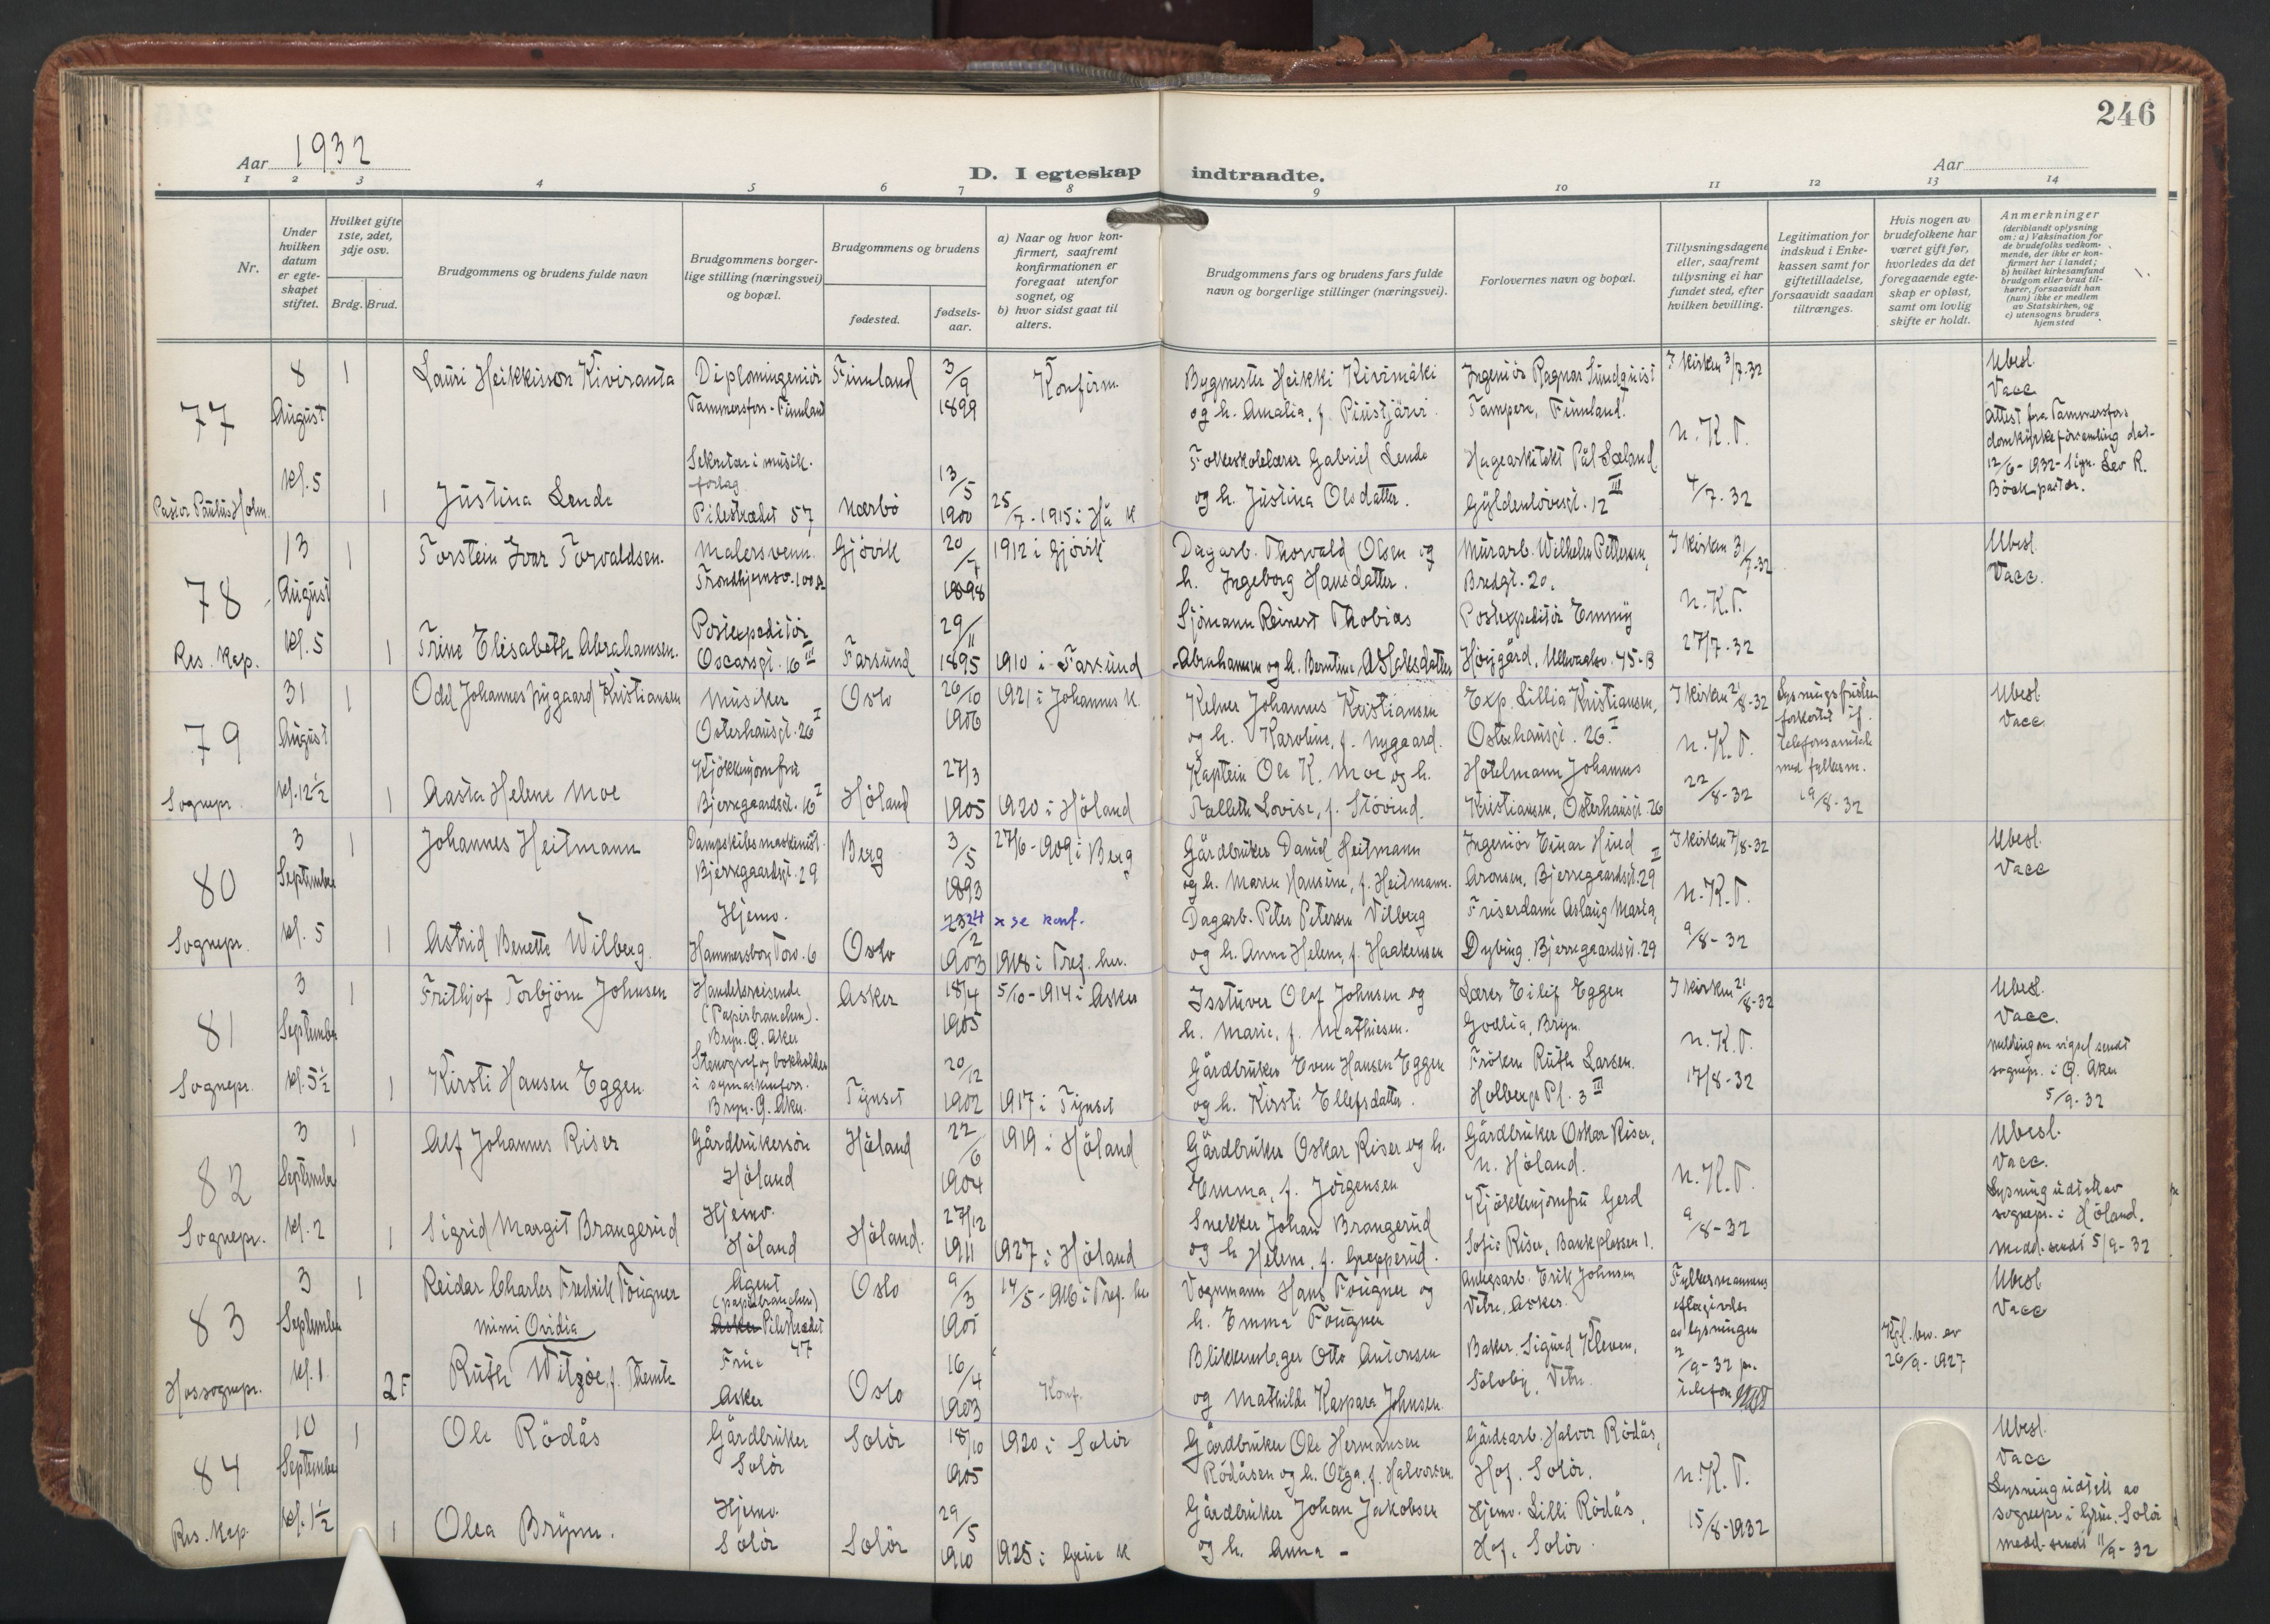 246
Aar 1932
D. I egteskap indtraadte.
Aar
1 2 3 4 5 6 7 8 9 10 11 12 13 14
Nr.
Under hvilken datum er egteskapet stiftet.
Hvilket gifte 1ste, 2det, 3dje osv.
Brdg. Brud.
Brudgommens og brudens fulde navn
Brudgommens borgerlige stilling (næringsvei) og bopæl.
Brudgommens og brudens
fødested.
fødselsaar.
a) Naar og hvor konfirmert, saafremt konfirmationen er foregaat utenfor sognet, og
b) hvor sidst gaat til alters.
Brudgommens fars og brudens fars fulde navn og borgerlige stillinger (næringsvei).
Forlovernes navn og bopæl.
Tillysningsdagene eller, saafremt tillysning ei har fundet sted, efter hvilken bevilling.
Legitimation for indskud i Enkekassen samt for giftetilladelse, forsaavidt saadan tiltrænges.
Hvis nogen av brudefolkene har været gift før, hvorledes da det foregaaende egteskap er opløst, samt om lovlig skifte er holdt.
Anmerkninger (deriblandt oplysning om: a) Vaksination for de brudefolks vedkommende, der ikke er konfirmert her i landet; b) hvilket kirkesamfund brudgom eller brud tilhører, forsaavidt han (hun) ikke er medlem av Statskirken, og c) utensogns bruders hjemsted
77
8 August kl. 5
Pastor Paulus Holm.
1
Lauri Heikkisson Kiviranta
Diplomingeniør
Tammersfors - Finnland
Finnland
3/9 1899
Konfirm.
Bygmester Heikki Kivimäki
og h. Amalia, f. Piustjärvi.
Ingeniør Ragnar Sundquist
Tampere, Finnland.
I kirken 3/7.32
n. K. T.
4/7.32
Ubesl.
Vacc
Attest fra Tammersfors
domkirkeforsamling dat.
12/6-1932 - sign. Lev R.
Böök pastor.
1
Justina Lende
Sekretær i musikforlag
Pilestrædet 57
Nærbø
13/5 1900
25/7-1915 i Hå K
Folkeskolelærer Gabriel Lende
og h. Justina Olsdatter.
Hagearkitekt Pål Sæland
Gyldenløvesgt. 12 III
78
13 August kl. 5
Res. kap.
1
Torstein Ivar Torvaldsen.
Malersvenn.
Trondhjemsv. 100 A
Gjøvik
20/7 1898
1912 i Gjøvik
Dagarb. Thorvald Olsen og
h. Ingeborg Hansdatter.
Murarb. Wilhelm Pettersen,
Bredgt. 20.
I kirken 31/7-32
n. K. T.
27/7-32
Ubesl.
Vacc.
1
Trine Elisabeth Abrahamsen.
Postexpeditør
Oscarsgt. 16 III
Farsund
29/11 1895
1910 i Farsund
Sjømann Reinert Thobias
Abrahamsen og h. Berntine Aslaksdatter
Postexpeditør Emmy
Høygård, Ullevaalsv. 45-B
79
31 August kl. 12½
Sognepr.
1
Odd Johannes Nygaard Kristiansen
Musiker
Osterhausgt. 26 I
Oslo
26/10 1906
1921 i Johannes K.
Kelner Johannes Kristiansen
og h. Karoline, f. Nygaard.
Exp. Lillia Kristiansen,
Osterhausgt. 26 I
I kirken 21/8-32
n. K. T.
22/8-32
Lysningsfristen
forkortet if.
telefonsamtale
med fylkesm.
19/8-32
Ubesl.
Vacc.
1
Aasta Helene Moe
Kjøkkenjomfru
Bjerregaardsgt. 16 I
Høland
27/3 1905
1920 i Høland
Kaptein Ole K. Moe og h.
Tallette Lovise, f. Støvind.
Hotelmann Johannes
Kristiansen, Osterhausgt. 26
80
3 September kl. 5
Sognepr.
1
Johannes Heitmann
Dampskibsmaskinist.
Bjerregaardsgt. 29
Berg
3/5 1893
27/6-1909 i Berg
Gårdbruker David Heitmann
og h. Maren Hansine, f. Heitmann.
Ingeniør Einar Hind
Aronsen, Bjerregaardsgt. 29 II
I kirken 7/8-32
n. K. T.
9/8-32
Ubesl.
Vacc
1
Astrid Benette Wilberg.
Hjemv.
Hammersborg Torv. 6
Oslo
24/2 1903
x se konf.
1918 i Tref. her.
Dagarb. Peter Petersen Vilberg
og h. Anne Helene, f. Haakensen
Friserdame Aslaug Maria,
Dybing, Bjerregaardsgt. 29
81
3 September kl. 5½
Sognepr.
1
Frithjof Torbjørn Johnsen
Handelsreisende
(Papirbranchen).
Bryn. Ø. Aker
Asker
18/4 1905
5/10-1914 i Asker
Isstuver Olaf Johnsen og
h. Marie, f. Mathiesen.
Lærer Eilif Eggen
Godlia, Bryn.
I kirken 21/8-32
n. K. T.
17/8-32
Ubesl.
Vacc.
melding om vigsel sendt
sognepr. i Ø. Aker
5/9-32
1
Kirsti Hansen Eggen
Stenograf og bokholder
i symaskinforr.
Bryn. Ø. Aker.
Tynset
20/12 1902
1917 i Tynset
Gårdbruker Even Hansen Eggen
og h. Kirsti Ellefsdatter.
Frøken Ruth Larsen.
Holbergs Pl. 3 III
82
3 September kl. 2
Sognepr.
1
Alf Johannes Riser
Gårdbrukersøn
Høland
Høland
22/6 1904
1919 i Høland
Gårdbruker Oskar Riser og h.
Emma, f. Jörgensen
Gårdbruker Oskar Riser,
N. Høland.
n. K. T.
9/8-32
Ubesl.
Vacc.
Lysning utført av
sognepr. i Høland.
Medd. sendt 5/9-32
1
Sigrid Margit Brangerud
Hjemv.
Høland
Høland.
27/12 1911
1927 i Høland
Snekker Johan Brangerud
og h. Helene, f. Grepperud.
Kjøkkenjomfru Gerd
Sofie Riser, Bankplassen 1.
83
3 September kl. 1
Hossognepr.
1
Reidar Charles Fredrik Fougner
Agent
(papirbranchen)
Asker Pilestrædet
47
Oslo
9/3 1901
14/5-1916 i Tref. her
Vognmann Hans Fougner og
h. Emma Fougner
Anlegsarb. Erik Johnsen
Vetre, Asker.
Fylkesmannens
eftergivelse
av lysningen
2/9-32 pr.
telefon
Kgl. bev. av
26/9-1927
Ubesl
Vacc
2 F
Mimi Ovidia
Ruth Witzøe, f. Themte
Frue
Asker
Oslo
16/4 1903
Konf.
Blikkenslager Otto Antonsen
og Mathilde Kaspara Johnsen
Baker. Sigurd Kleven,
Solvby, Vetre.
84
10 September kl. 1½
Res. kap.
1
Ole Rödås
Gårdbruker
Solør
Solør
18/10 1905
1920 i Solør
Gårdbruker Ole Hermansen
Rödåsen og h. Olga, f. Halvorsen.
Gårdsarb. Halvor Rödås,
Hof. Solør.
n. K. T.
15/8-1932
Ubesl.
Vacc
Lysning utstedt av
sognepr i Grue. Solør
medd. sendt 11/9-32
1
Olea Brynn.
Hjemv.
Solør
Solør
29/5 1910
1925 i Grue K
Gårdbruker Johan Jakobsen
og h. Anna -
Hjemv. Lilli Rödås,
Hof. Solør.